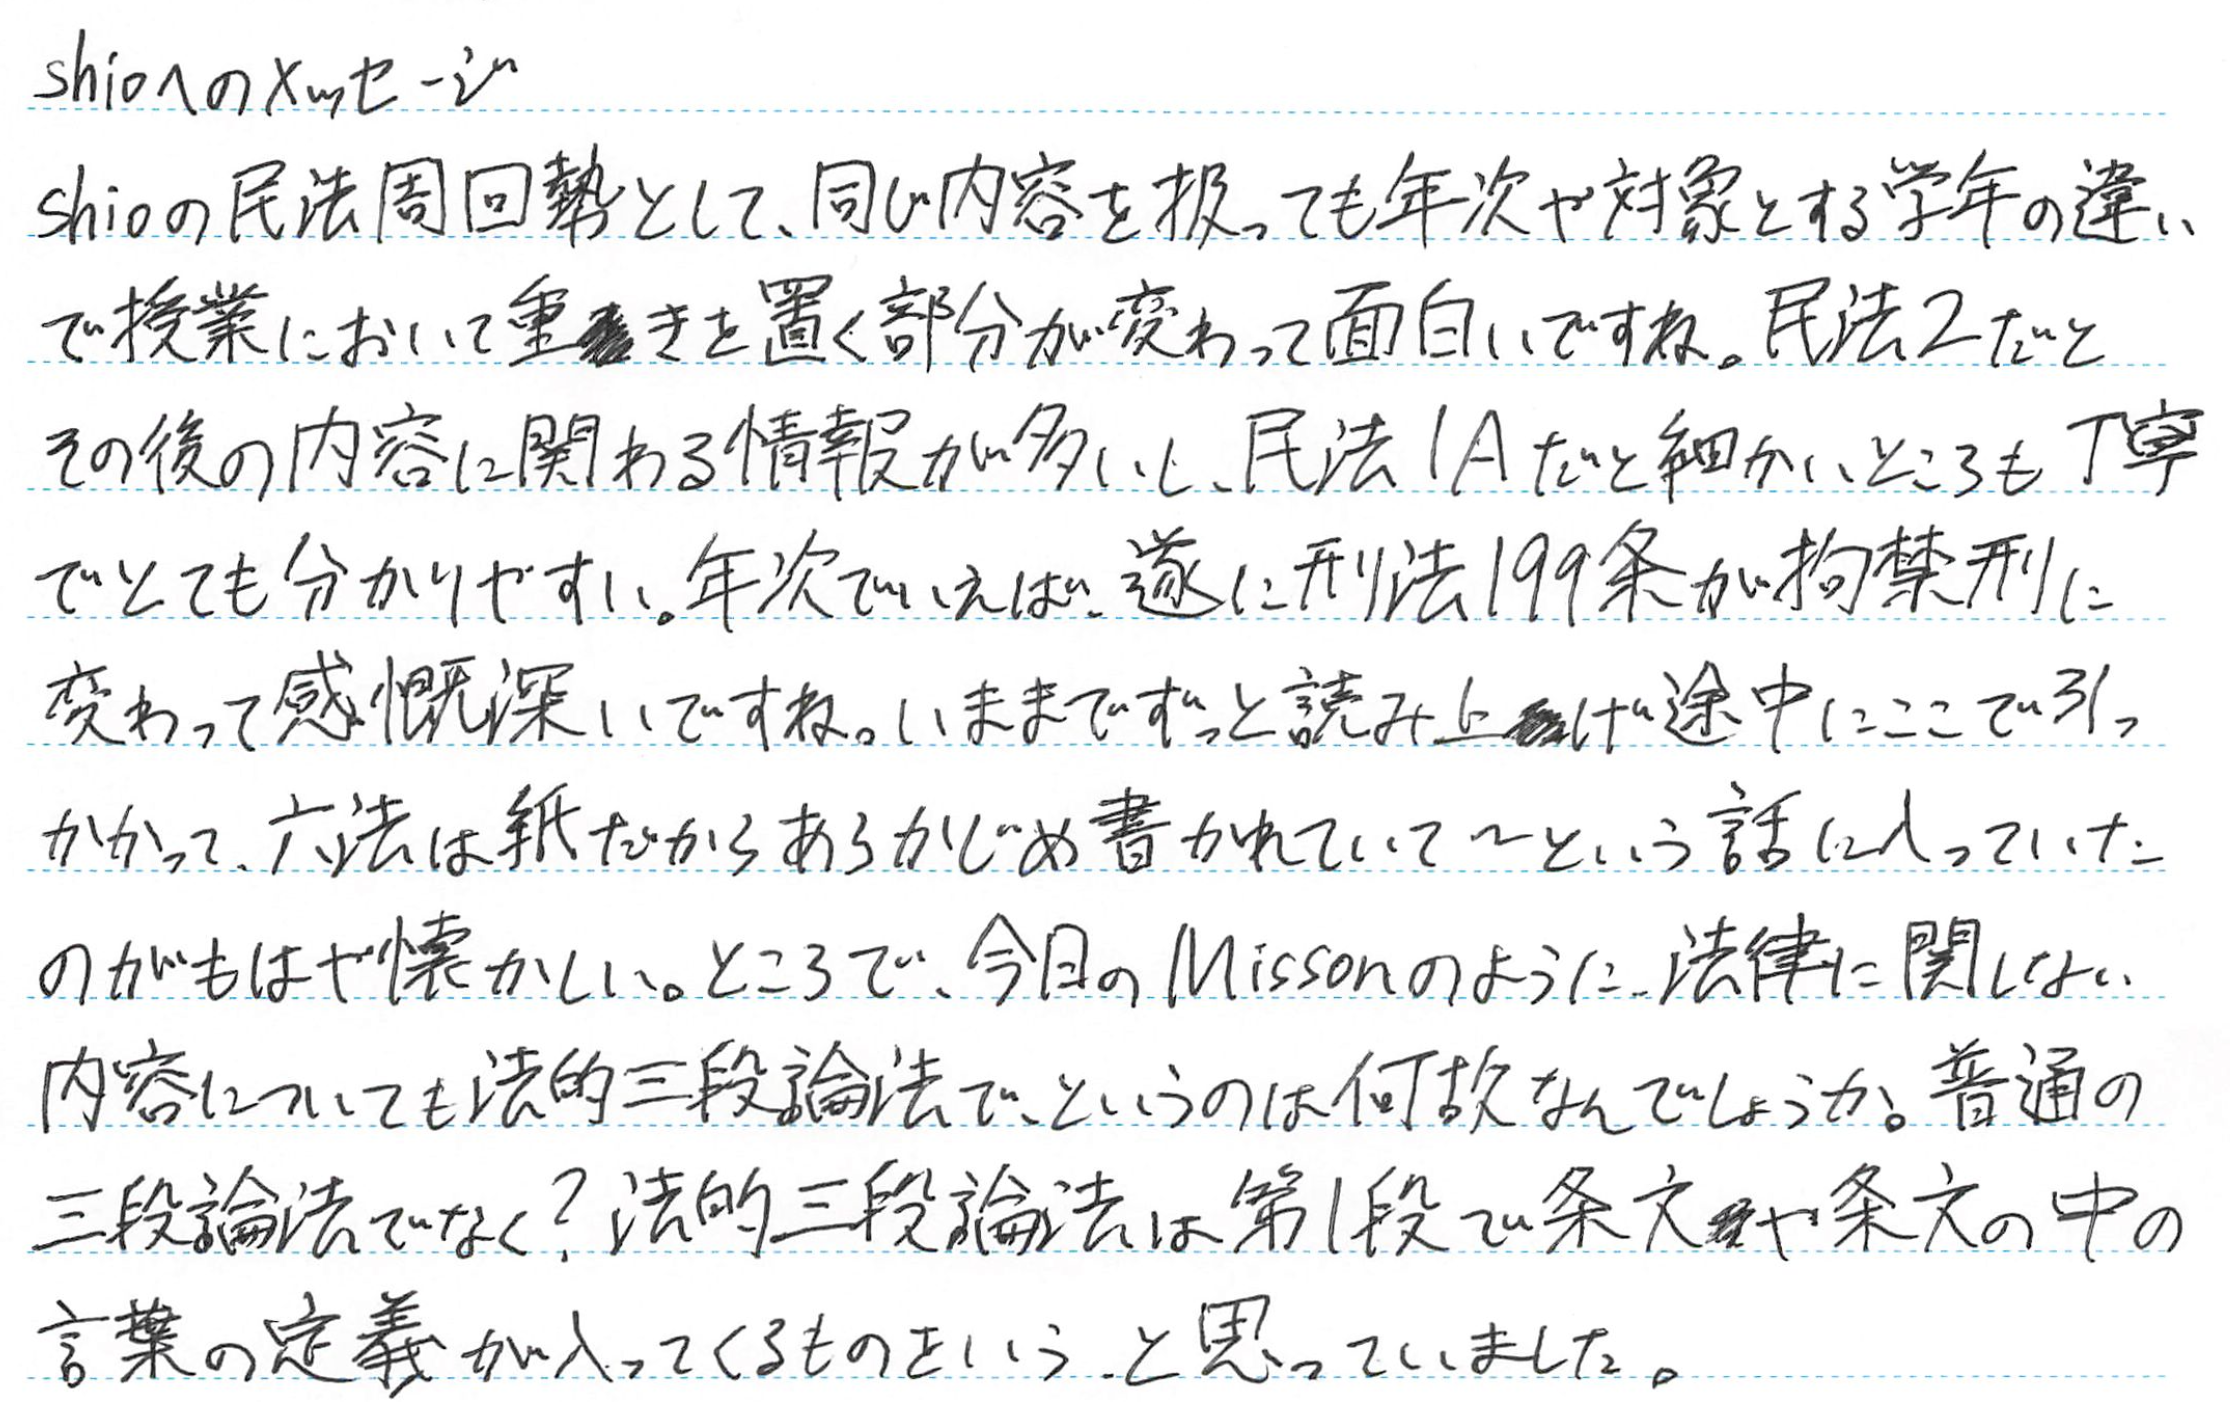 shioへのメッセージ
shioの民法周回勢として、同じ内容を扱っても年次や対象とする学年の違い
で授業において重きを置く部分が変わって面白いですね。民法2だと
その後の内容に関わる情報が多いし、民法1Aだと細かいところも丁寧
でとても分かりやすい。年次でいえば、遂に刑法199条が拘禁刑に
変わって感慨深いですね。いままでずっと読み上げ途中にここで引っ
かかって、六法は紙だからあらかじめ書かれていて〜という話に入っていた
のがもはや懐かしい。ところで、今日のMissonのように、法律に関しない
内容についても法的三段論法で、というのは何故なんでしょうか。普通の
三段論法でなく？法的三段論法は第1段で条文や条文の中の
言葉の定義が入ってくるものをいう、と思っていました。